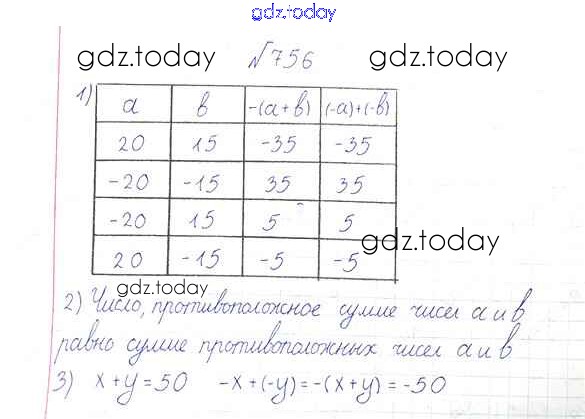 gdz.today
gdz.today №756 gdz.today
1)
a в -(a+в) (-a)+(-в)
20 15 -35 -35
-20 -15 35 35
-20 15 5 5
gdz.today
20 -15 -5 -5
gdz.today
2) Число, противоположное сумме чисел a и в
равно сумме противоположных чисел a и в
3) x+y=50 -x+(-y)=-(x+y)=-50